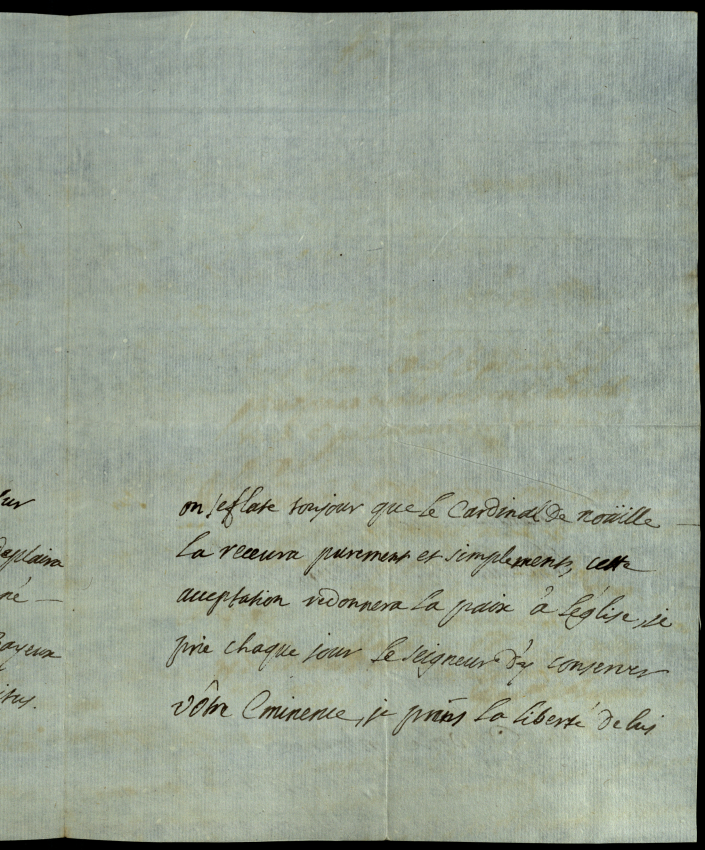 deplaira
né —
Bayeux
on seflate toujour que le Cardinal de noüille —
la receura purement et simplement, cette
acceptation redonnera la paix a léglise, je
prie chaque jour le seigneur d'y conserver
vôtre Eminence, je prens la liberté de lui